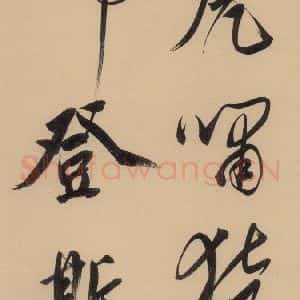 虎嘯猿
登斯
Shufawang.CN